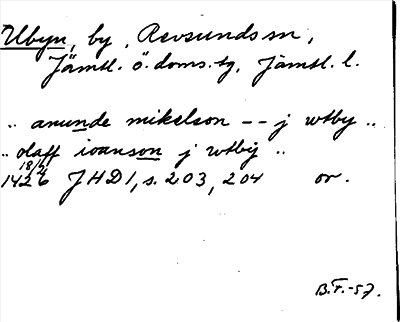 Utbyn, by, Revsunds sn,
Jämtl. ö. doms. tg, Jämtl. l.
.. anunde mikelson -- j wtby ..
.. olaff ioanson j wtbÿ ..
18/2
1426 JHD 1, s. 203, 204 or.
B.F.-57.